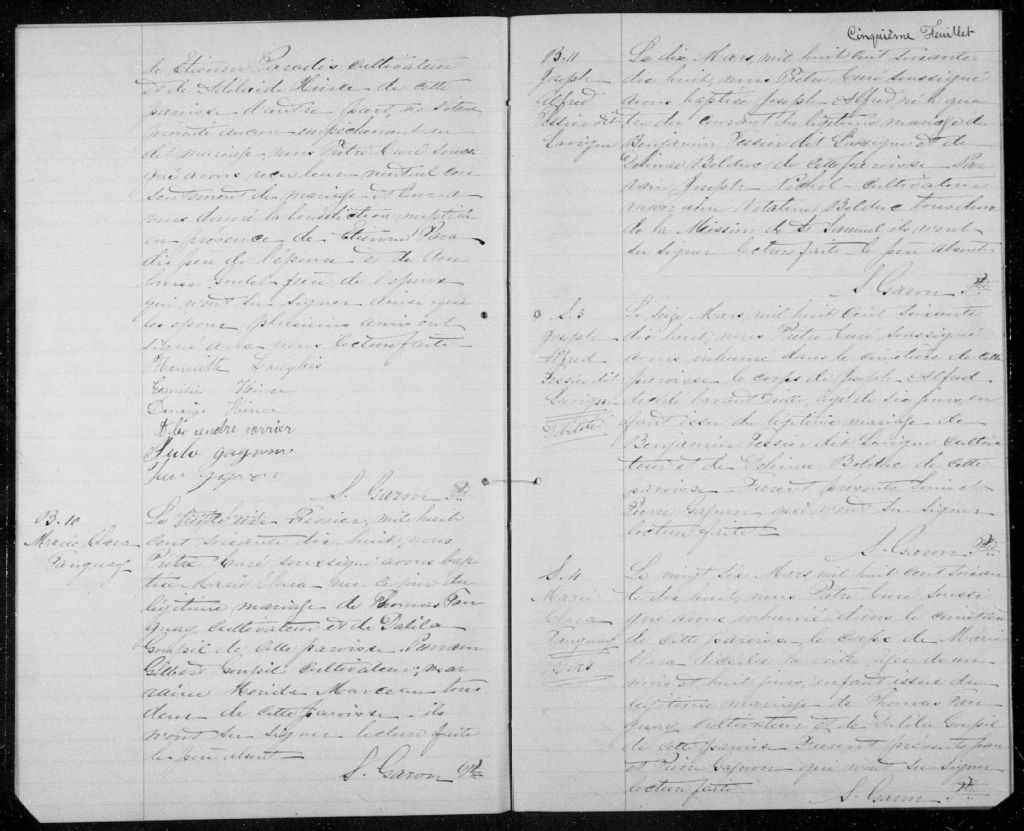 de Etienne Paradis cultivateur
et de Adelaide Hince de cette
paroisse d'autre part, ne s'étant
présenté aucun empêchement au
dit mariage, nous Prêtre Curé soussi
gné avons reçu leur mutuel con
sentement de mariage et leur a
vons donné la bénédiction nuptiale
en présence de Etienne Para
dis père de l'épouse et de Am
broise Goulet frère de l'époux
qui n'ont su signer ainsi que
les époux plusieurs amis ont
signé avec nous lecture faite
Henriette Langlois
Emélie Hince
Hince
verrier
Jule gagnon
gagnon
S. Garon Ptre
B. 10
Marie Clara
Tanguay
Le Février, mil huit
cent soixante dix huit, nous
Prêtre Curé soussigné avons bap
tisé Marie Clara née ce jour du
légitime mariage de Thomas Tan
guay cultivateur et de Dalila
Goupil de cette paroisse. Parrain
Gilbert Goupil cultivateur, mar
raine Marceau tous
deux de cette paroisse ils
n'ont su signer lecture faite
le père absent
S. Garon Ptre
Cinquième Feuillet
B. 11
Joseph
Alfred
Tessier dit
Lavigne
Le dix Mars, mil huit cent soixante
dix huit, nous Prêtre Curé soussigné
avons baptisé Joseph Alfred né le qua
tre du courant du légitime mariage de
Benjamin Tessier dit Lavigne et de
Delima Bolduc de cette paroisse Par
rain Joseph cultivateur
marraine Bolduc tous deux
de la Mission de St Samuel ils n'ont
su signer lecture faite le père absent
S. Garon Ptre
S. 3
Joseph
Alfred
Tessier dit
Lavigne
Le seize Mars, mil huit cent soixante
dix huit, nous Prêtre Curé soussigné
avons inhumé dans le cimetière de cette
paroisse le corps de Joseph Alfred
décédé l'avant veille, âgé de dix jours, en
fant issu du légitime mariage de
Benjamin Tessier dit Lavigne cultiva
teur et de Delima Bolduc de cette
paroisse Furent présents et
Pierre Gagnon qui n'ont su signer
lecture faite
S. Garon Ptre
S. 4
Marie
Clara
Tanguay
Le vingt six Mars mil huit cent soixan
te dix huit, nous Prêtre Curé soussi
gné avons inhumé dans le cimetière
de cette paroisse le corps de Marie
Clara décédée la veille âgée de un
mois et huit jours, enfant issue du
légitime mariage de Thomas Tan
guay cultivateur et de Dalila Goupil
de cette paroisse Furent présents
et Pierre Gagnon qui n'ont su signer
lecture faite
S. Garon Ptre